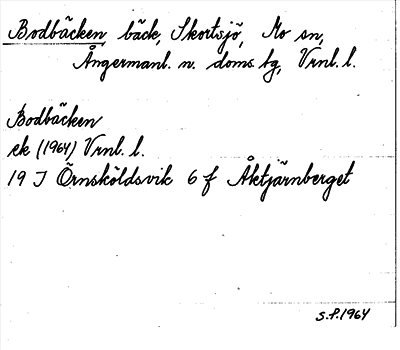 Bodbäcken bäck, Skortsjö, Mo sn,
Ångermanl. n. doms.tg, Vrnl. l.
Bodbäcken
ek (1964) Vrnl. l.
19 J Örnsköldsvik 6 f Åktjärnberget
S.P. 1964